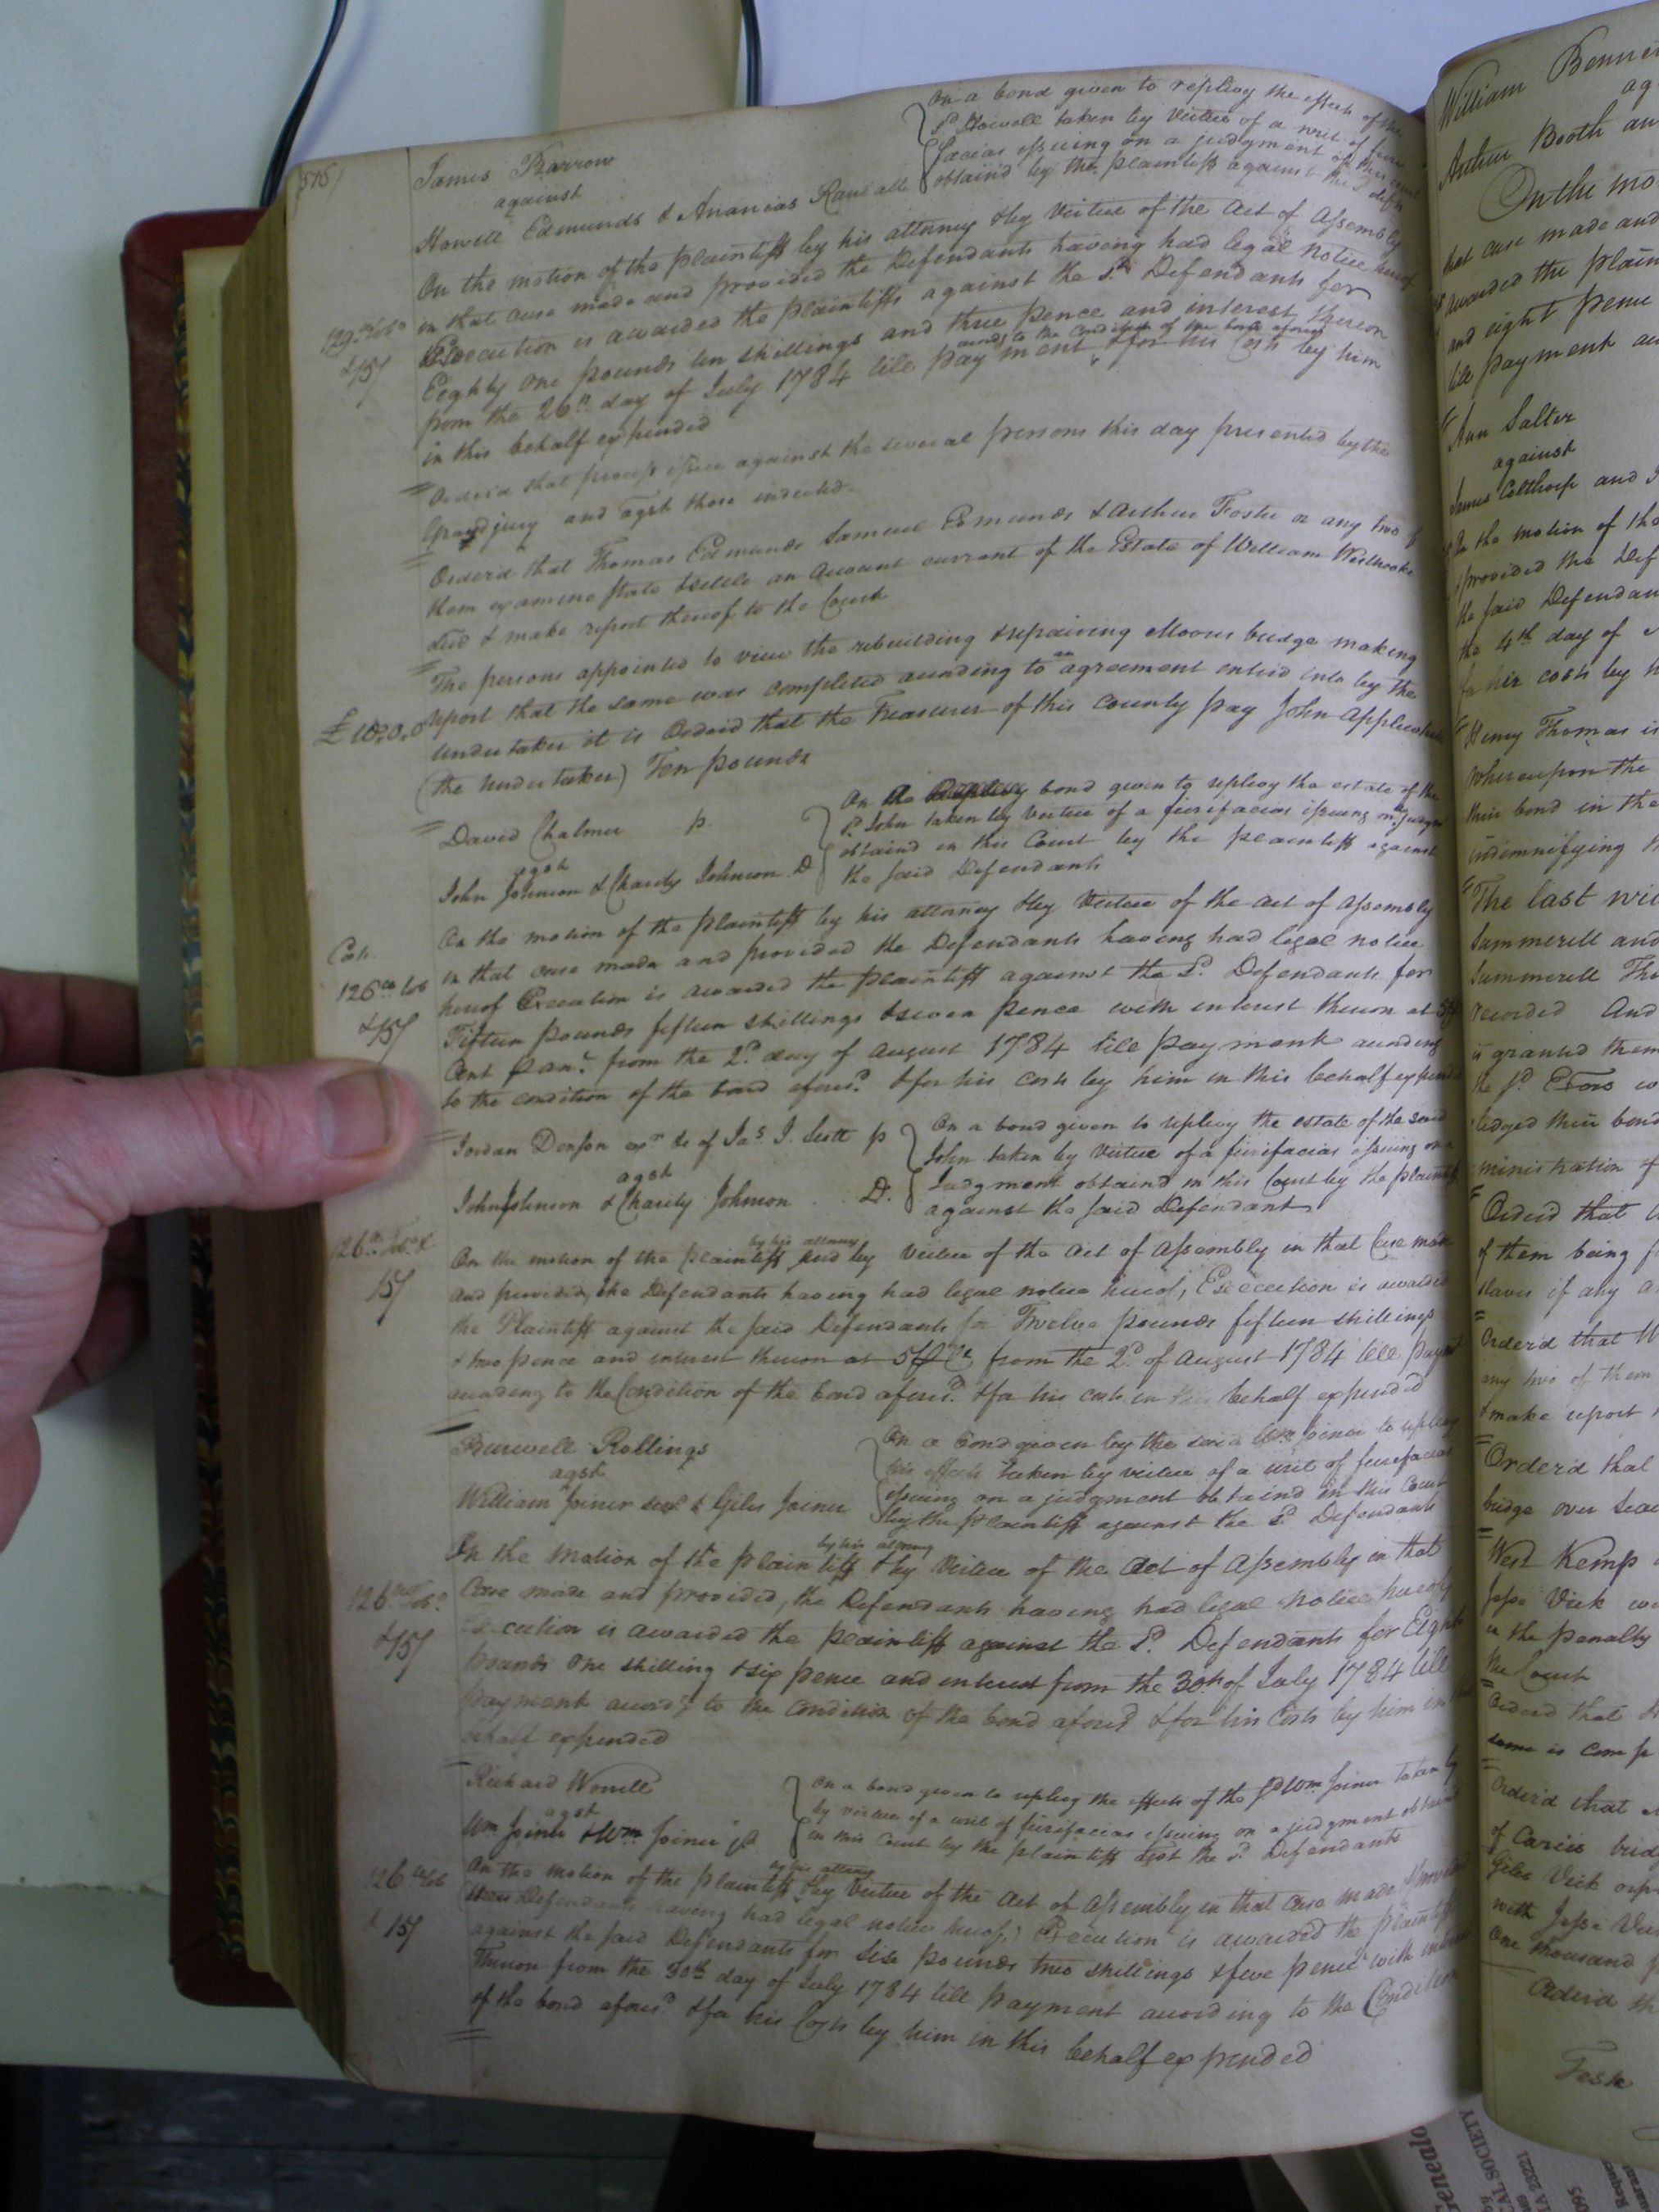 James Barrow
against
Howell Edmunds & Ananias Randall
On a bond given to replevy the effects of the
sd. Howell taken by Virtue of a writ of fieri
facias issuing on a judgment of this Court
obtain'd by the plaintiff against the sd. defts
On the motion of the plaintiff by his attorney & by Virtue of the Act of Assembly
in that case made and provided the Defendants having had legal notice hereof
Execution is awarded the plaintiffs against the sd. Defendants for
Eighty one pounds ten shillings and three pence and interest thereon
from the 26th day of July 1784 till payment accordg to the Condition of the bond aforesd & for his Costs by him
in this behalf expended
129
& 15/
Order'd that process issue against the several persons this day presented by the
Grandjury and agst those indicted
Order'd that Thomas Edmunds Samuel Edmunds & Arthur Foster or any two of
them examine state & settle an Account current of the Estate of William Westbrooke
decd & make report thereof to the Court
The persons appointed to view the rebuilding & repairing Moores bridge making
report that the same was completed according to an agreement enterd into by the
undertaker it is Orderd that the Treasurer of this County pay John Applewhaite
(the undertaker) Ten pounds
£10.0.0
David Chalmer p.
agst
John Johnson & Charity Johnson D
On a bond given to replevy the estate of the
sd. John taken by virtue of a fierifacias issuing on a Judgmt
obtaind in this Court by the plaintiff against
the said Defendants
On the motion of the plaintiff by his attorney & by Virtue of the act of Assembly
in that case made and provided the Defendants having had legal notice
hereof Execution is awarded the plaintiff against the sd. Defendants for
Fifteen pounds fifteen shillings & seven pence with interest thereon at 5 p
Cent p an. from the 2d. day of August 1784 till payment according
to the condition of the bond aforesd. & for his costs by him in this behalf expended
126
& 15/
Jordan Denson exr &c of Jas. J. Scott p
agst
John Johnson & Charity Johnson D.
On a bond given to replevy the estate of the said
John taken by Virtue of a fierifacias issuing on a
Judgment obtaind in this Court by the plaintiff
against the said Defendants
On the motion of the plaintiff by his attorney and by Virtue of the Act of Assembly in that Case made
and provided, the Defendants having had legal notice hereof, Execution is awarded
the Plaintiff against the said Defendants for Twelve pounds fifteen shillings
& two pence and interest thereon at 5 p Ct from the 2d. of August 1784 till paymt
according to the Condition of the bond aforesd. & for his costs in this behalf expended
126
15/
Burwell Rollings
agst
William Joiner senr & Giles Joiner
On a bond given by the said Wm Joiner to replevy
his effects taken by virtue of a writ of fierefacias
issuing on a judgment obtaind in this Court
by the plaintiff against the sd. Defendants
On the motion of the plaintiff by his attorney & by Virtue of the Act of Assembly in that
Case made and provided, the Defendants having had legal notice hereof
Execution is awarded the plaintiff against the sd. Defendants for Eight
pounds One shilling & six pence and interest from the 30th of July 1784 till
payment accordg to the Condition of the bond aforesd & for his Costs by him in this
behalf expended
126
& 15/
Richard Worrell
agst
Wm Joiner & Wm Joiner jr
On a bond given to replevy the effects of the sd Wm Joiner taken by
by virtue of a writ of fierifacias issuing on a judgment obtaind
in this Court by the plaintiff agst the sd. Defendants
On the motion of the plaintiff by his attorney & by Virtue of the Act of Assembly in that Case made & provided
Defendants having had legal notice hereof,) Execution is awarded the plaintiff
against the said Defendants for Six pounds two shillings & five pence with interest
Thereon from the 30th day of July 1784 till payment according to the Condition
of the bond aforesd. & for his Costs by him in this behalf expended
126
& 15/
William Bennet
Arthur Booth an
On the mo
that case made and
awarded the plain
and eight pence
till payment
Ann Salter
against
James Calthorp and
On the motion of the
provided the Def
the said Defendan
the 4th day of
for her costs by h
Henry Thomas is
whereupon the
their bond in the
indemnifying
The last wil
Summerell and
Summerell Tho
recorded And
is granted them
the sd. Exors
ledged their bond
ministration of
Orderd that
of them being
slaves if any
Order'd that W
any two of them
& make report
Order'd that
bridge over
West Kemp
Jesse Vick
in the penalty
the Court
Orderd that
same is comp
Order'd that
of Carris bridg
Giles Vick
with Jesse
One thousand
Orderd th
Teste